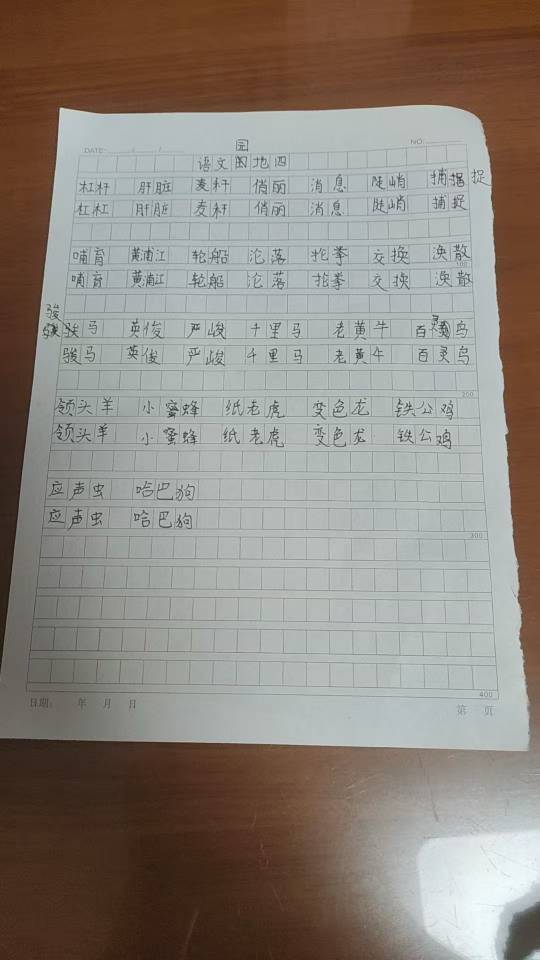 DATE / / NO:
园
语文园地四
杠杆 肝脏 麦秆 俏丽 消息 陡峭 捕捉 捉
杠杠 肝脏 麦秆 俏丽 消息 陡峭 捕捉
哺育 黄浦江 轮船 沦落 抡拳 交换 涣散
100
哺育 黄浦江 轮船 沦落 抡拳 交换 涣散
骏
骏马 英俊 严峻 千里马 老黄牛 百灵鸟
骏马 英俊 严峻 千里马 老黄牛 百灵鸟
200
领头羊 小蜜蜂 纸老虎 变色龙 铁公鸡
领头羊 小蜜蜂 纸老虎 变色龙 铁公鸡
应声虫 哈巴狗
应声虫 哈巴狗
300
400
日期: 年 月 日 第 页